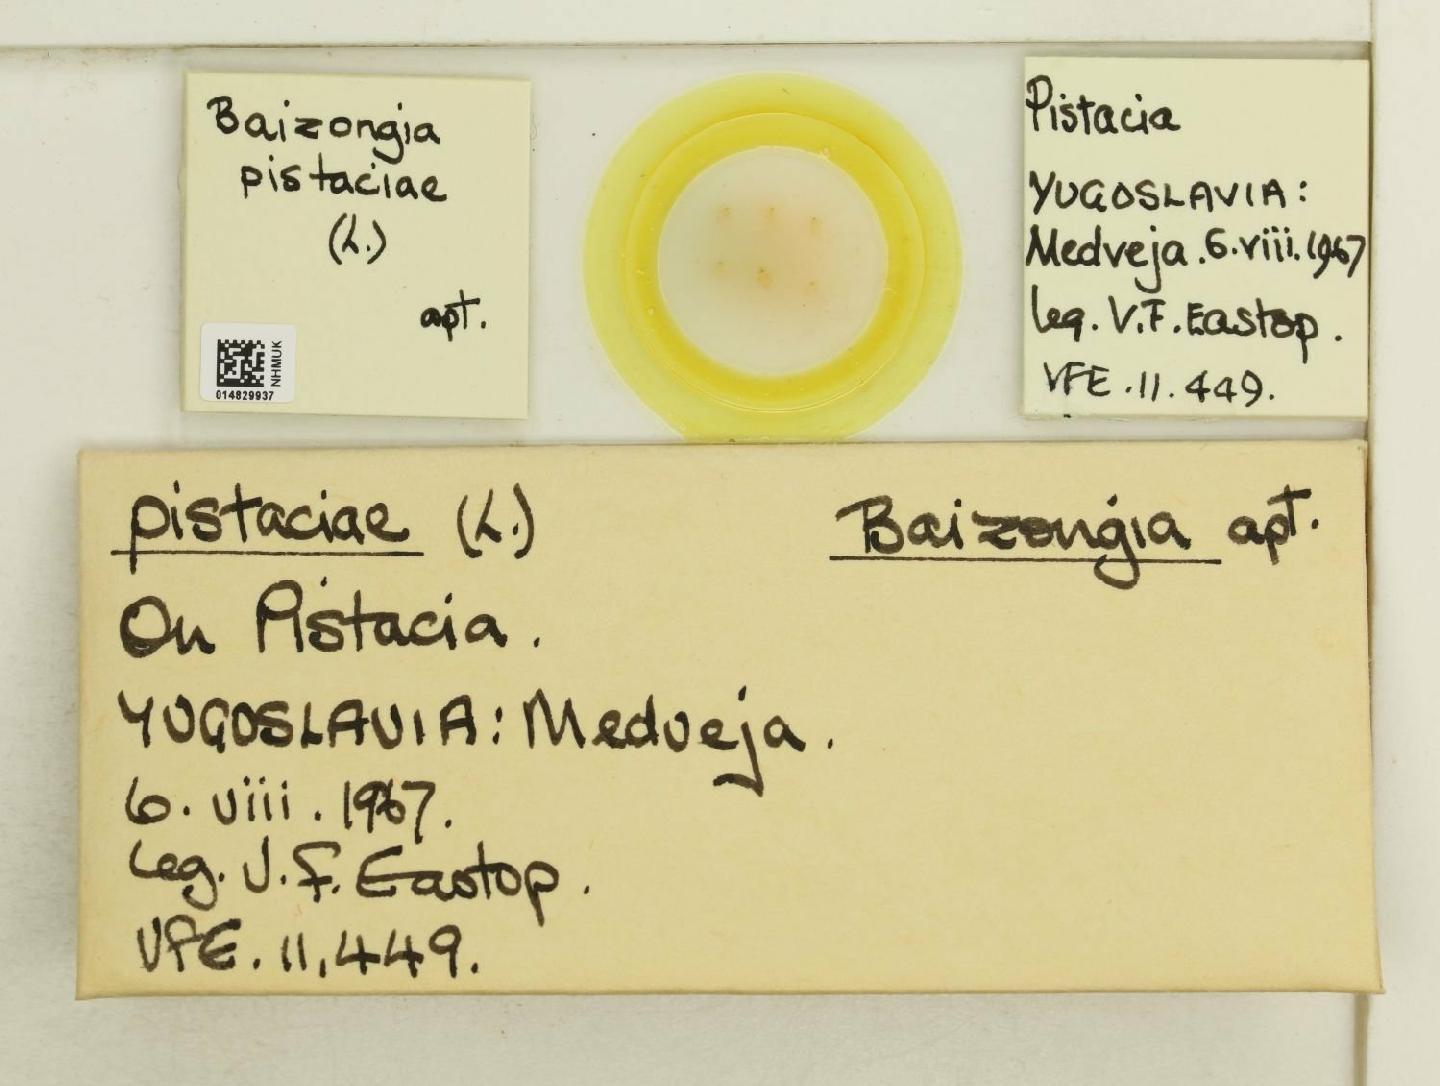 Baizongia
pistaciae
(L.)
apt.
NHMUK
014829937
Pistacia
YUGOSLAVIA:
Medveja. 6.viii.1967
leg. V.F. Eastop.
VFE. 11. 449.
pistaciae (L.)
Baizongia apt.
On Pistacia.
YUGOSLAVIA: Medveja.
6. viii. 1967.
Leg. V. F. Eastop.
VFE. 11,449.